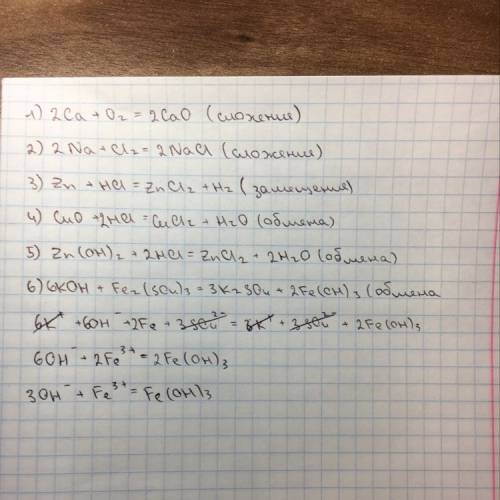 1) 2Ca + O2 = 2CaO (сложения)
2) 2Na + Cl2 = 2NaCl (сложения)
3) Zn + HCl = ZnCl2 + H2 (замещения)
4) CuO + 2HCl = CuCl2 + H2O (обмена)
5) Zn(OH)2 + 2HCl = ZnCl2 + 2H2O (обмена)
6) 6KOH + Fe2(SO4)3 = 3K2SO4 + 2Fe(OH)3 (обмена
6K⁺ + 6OH⁻ + 2Fe + 3SO4²⁻ = 6K⁺ + 3SO4²⁻ + 2Fe(OH)3
6OH⁻ + 2Fe³⁺ = 2Fe(OH)3
3OH⁻ + Fe³⁺ = Fe(OH)3